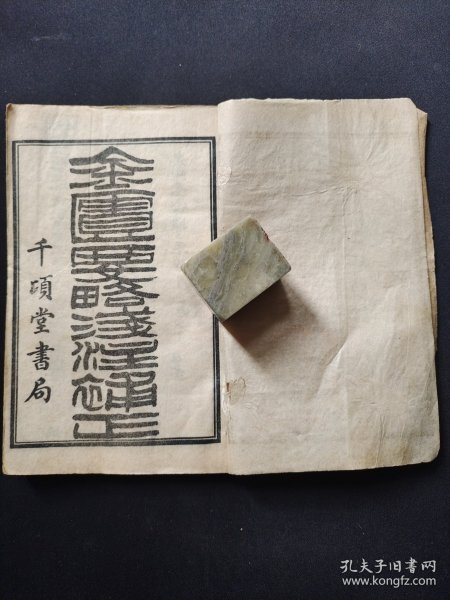 金匱要略淺注補正
千頃堂書局
孔夫子旧书网
www.kongfz.com